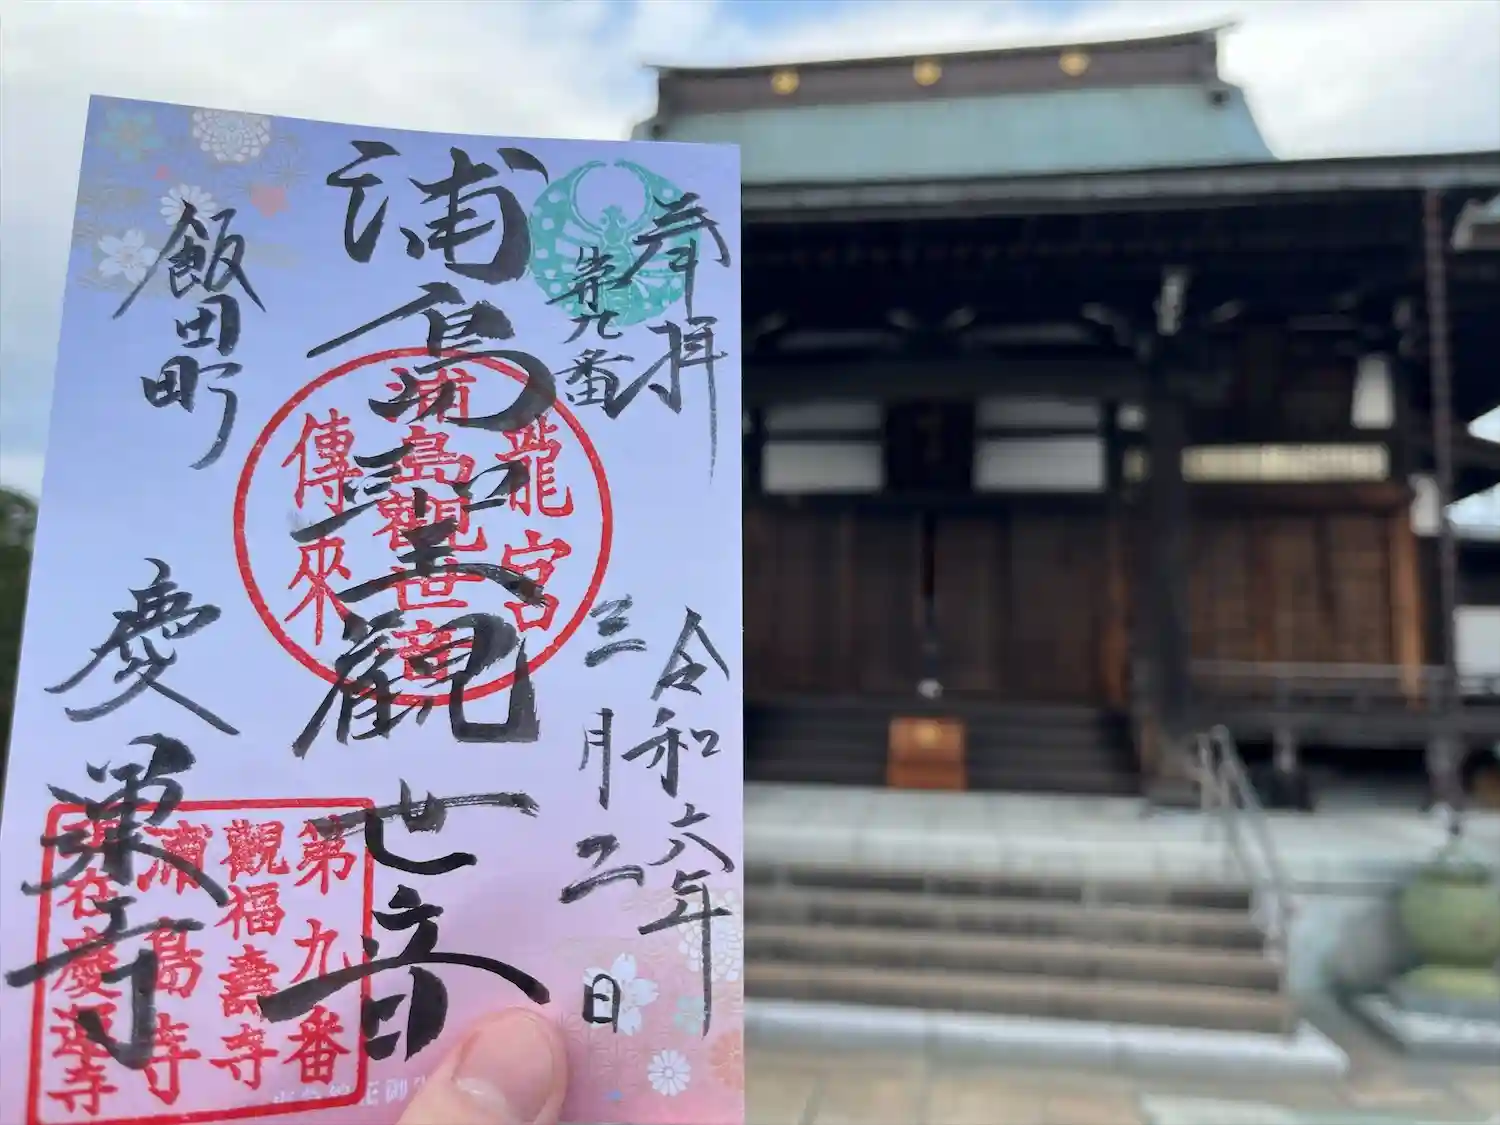 奉拝
第九番
令和六年
三月二日
浦島観世音
龍宮
浦島觀世音
傳来
飯田町
慶運寺
第九番
觀福壽寺
浦島寺
慶運寺